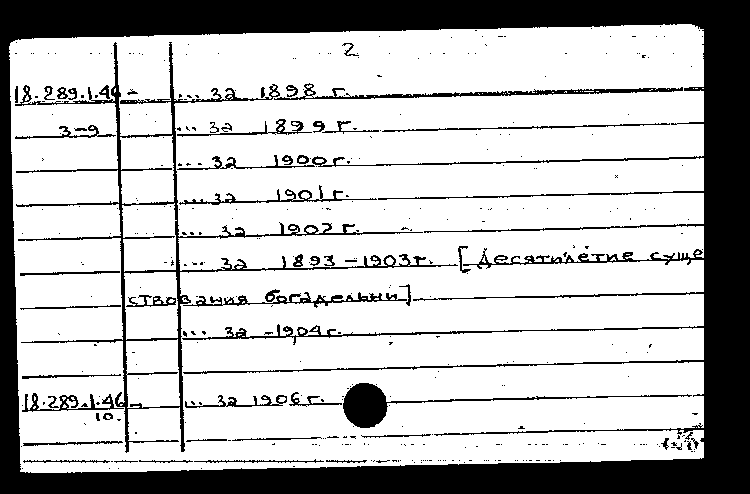 2
18.289.1.46- ... за 1898 г.
3-9 ... за 1899 г.
... за 1900 г.
... за 1901 г.
... за 1902 г.
... за 1893-1903 г. [Десятилетие суще
ствования богадельни]
... за -1904 г.
18.289.1.46- ... за 1906 г.
10.